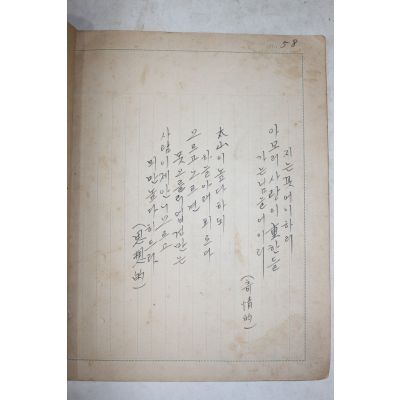 58
지는꽃어이하리
아모리사랑이重한들
가는님을어이리
情的)
太山이높다하되
하늘아래뫼로다
오르고오르면
못오를리업것만는
사람이제안니오르고
뫼만높다하드라
(思想的)